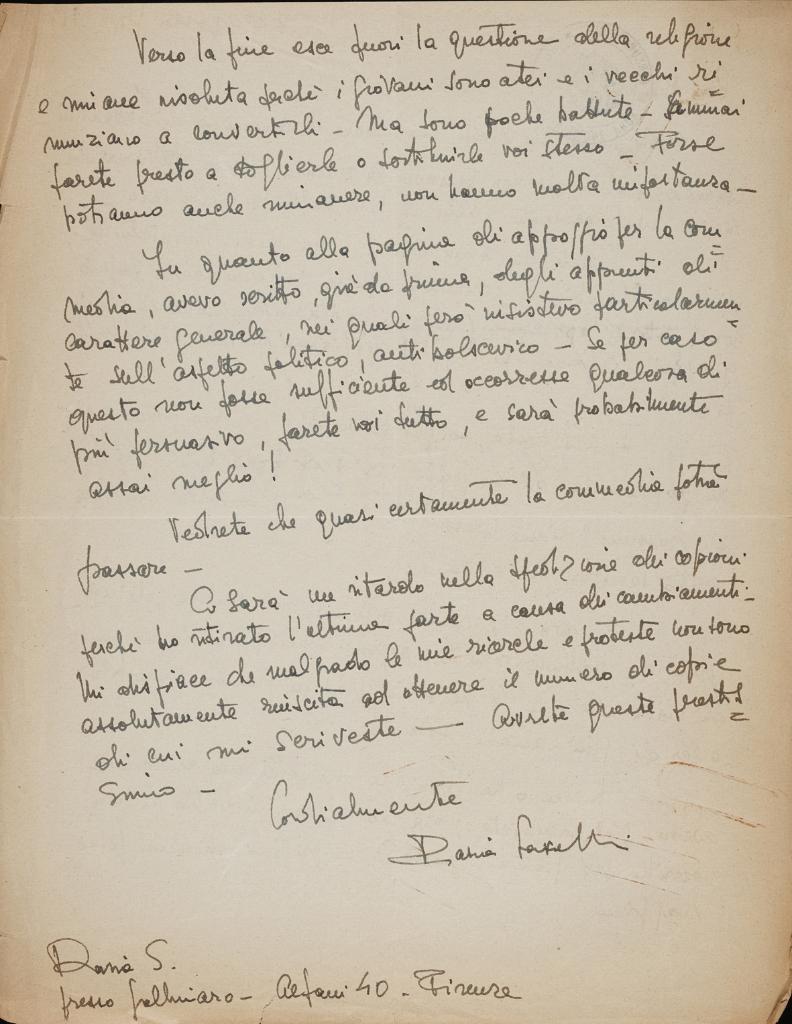 Verso la fine esce fuori la questione della religione
e rimane risoluta perchè i giovani sono atei e i vecchi ri=
nunziano a convertirli – Ma sono poche battute – Semmai
farete presto a toglierle o sostituirle voi stesso – Forse
potranno anche rimanere, non hanno molta importanza –
In quanto alla pagina di appoggio per la com=
media, avevo scritto, già da prima, degli appunti di
carattere generale, nei quali però insistevo particolarmen=
te sull'aspetto politico, antibolscevico – Se per caso
questo non fosse sufficiente ed occorresse qualcosa di
più persuasivo, farete voi tutto, e sarà probabilmente
assai meglio!
Vedrete che quasi certamente la commedia potrà
passare –
Ci sarà un ritardo nella spedizione dei copioni
perchè ho ritirato l'ultima parte a causa dei cambiamenti.
Mi dispiace che malgrado le mie ricerche e proteste non sono
assolutamente riuscita ad ottenere il numero di copie
di cui mi scriveste — Avrete queste prestis=
simo –
Cordialmente
Dania
Dania S.
presso – Alfani 40 – Firenze